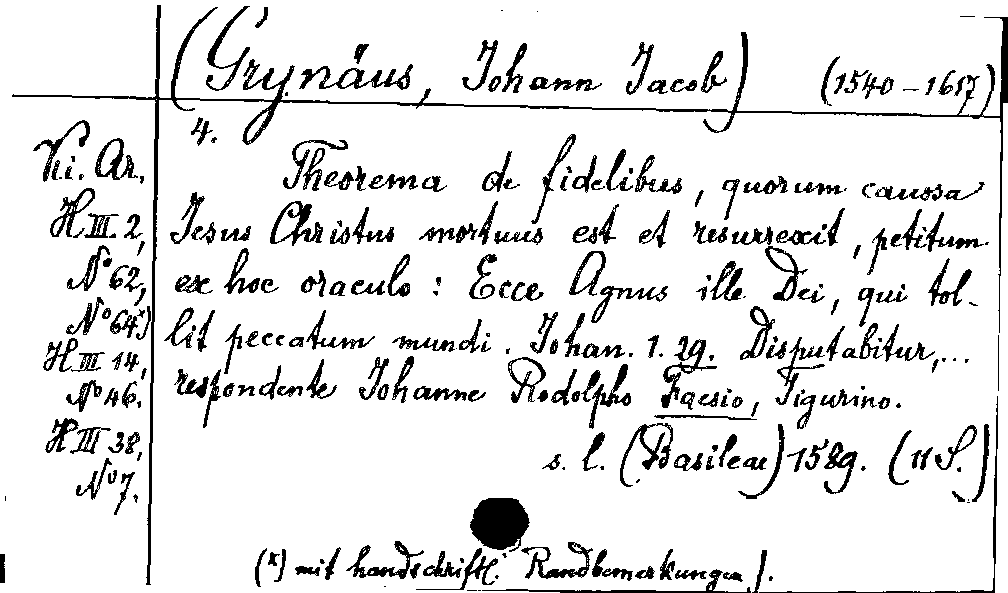 (Grynäus, Johann Jacob) (1540-1617)
4.
Ki. Ar.
H III 2,
No 62,
No 64x)
H III 14,
No 46.
H III 38,
No 7.
Theorema de fidelibus, quorum caussa
Jesus Christus mortuus est et resurrexit, petitum
ex hoc oraculo: Ecce Agnus ille Dei, qui tol-
lit peccatum mundi. Johan. 1. 29. Disputabitur,...
respondente Johanne Rodolpho Faesio, Tigurino.
s. l. (Basileae) 1589. (11 S.)
(x) mit handschriftl. Randbemerkungen).